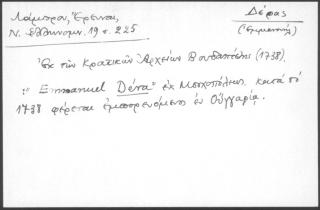 Λάμπρου, Ἔρευναι,
Ν. Ἑλληνομν. 19 σ. 225
Δέρας
(Ἐμμανουήλ)
Ἐκ τῶν Κρατικῶν Ἀρχείων Βουδαπέστης (1738).
"Emmanuel Déra" ἐκ Μοσχοπόλεως, κατὰ τὸ
1738 φέρεται ἐμπορευόμενος ἐν Οὑγγαρίᾳ.